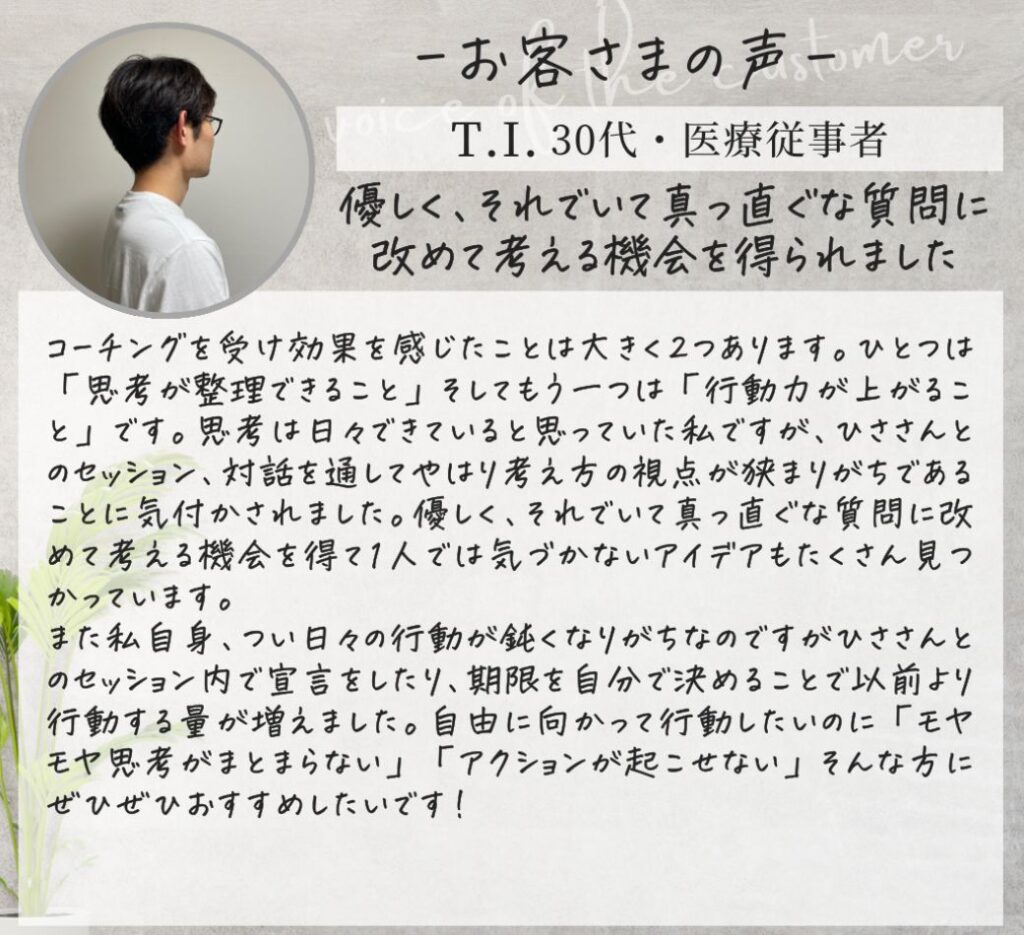 voice of the customer
-お客さまの声-
T.I. 30代・医療従事者
優しく、それでいて真っ直ぐな質問に
改めて考える機会を得られました
コーチングを受け効果を感じたことは大きく2つあります。ひとつは
「思考が整理できること」そしてもう一つは「行動力が上がるこ
と」です。思考は日々できていると思っていた私ですが、ひささんと
のセッション、対話を通してやはり考え方の視点が狭まりがちである
ことに気付かされました。優しく、それでいて真っ直ぐな質問に改
めて考える機会を得て1人では気づかないアイデアもたくさん見つ
かっています。
また私自身、つい日々の行動が鈍くなりがちなのですがひささんと
のセッション内で宣言をしたり、期限を自分で決めることで以前より
行動する量が増えました。自由に向かって行動したいのに「モヤ
モヤ思考がまとまらない」「アクションが起こせない」そんな方に
ぜひぜひおすすめしたいです!